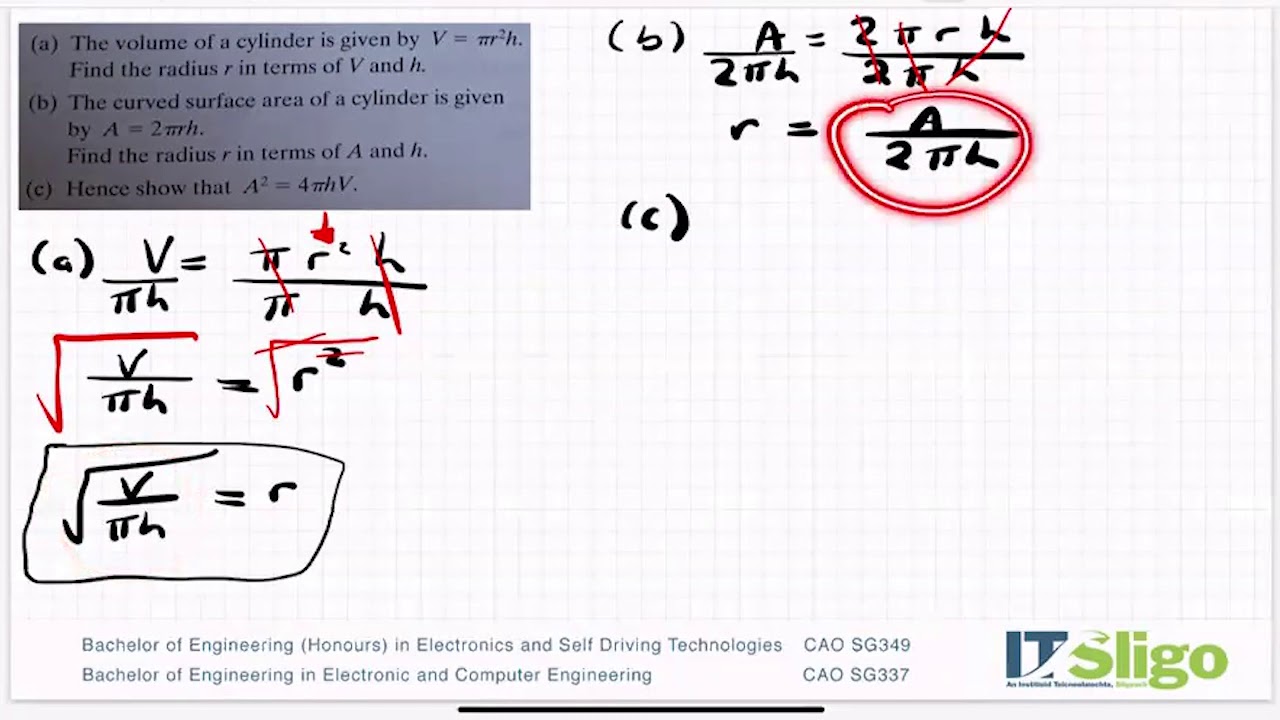 (a) The volume of a cylinder is given by V = πr²h.
Find the radius r in terms of V and h.
(b) The curved surface area of a cylinder is given
by A = 2πrh.
Find the radius r in terms of A and h.
(c) Hence show that A² = 4πhV.
(a) V/πh = π r² h/π h
√(V/πh) = √r²
√(V/πh) = r
(b) A/2πh = 2 π r h/2 π h
r = A/2πh
(c)
Bachelor of Engineering (Honours) in Electronics and Self Driving Technologies CAO SG349
Bachelor of Engineering in Electronic and Computer Engineering CAO SG337
IT Sligo
An Institiúid Teicneolaíochta, Sligeach